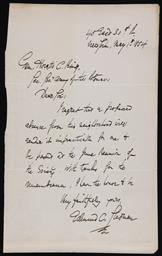 45 East 30th St.
New York, May 1st 1884
Genl. Horatio C. King,
Dear Sir:
I regret that a prolonged
absence from the neighborhood will
render it impracticable for me to
be present at the June Reunion of
the Society. With thanks for the
remembrance, I have the honor to be
Very faithfully yours,
Edmund C. Stedman